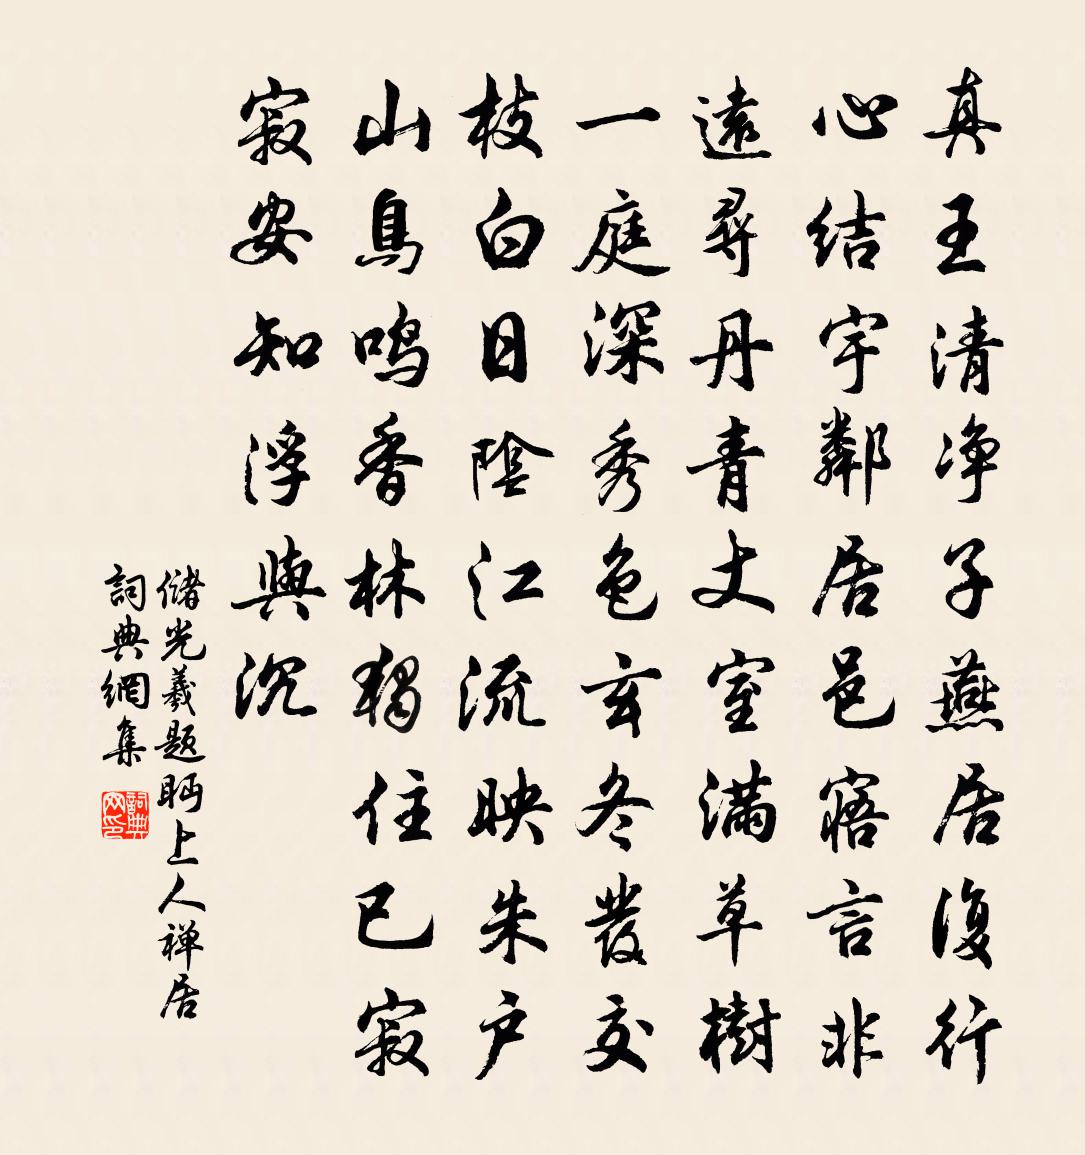 真王清净子燕居復行
心結宇鄰居邑寤言非
遠尋丹青丈室滿草樹
一庭深秀色玄冬發交
枝白日陰江流映朱户
山鳥鸣香林獨住已寂
寂安知浮與沉
儲光羲題眄上人禅居
詞典網集
詞典网印